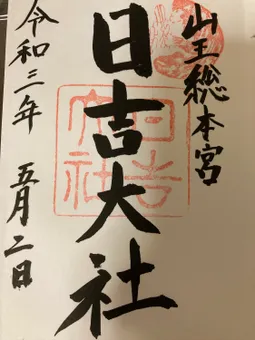 山王総本宮
日吉大社
令和三年 五月二日
日吉大社